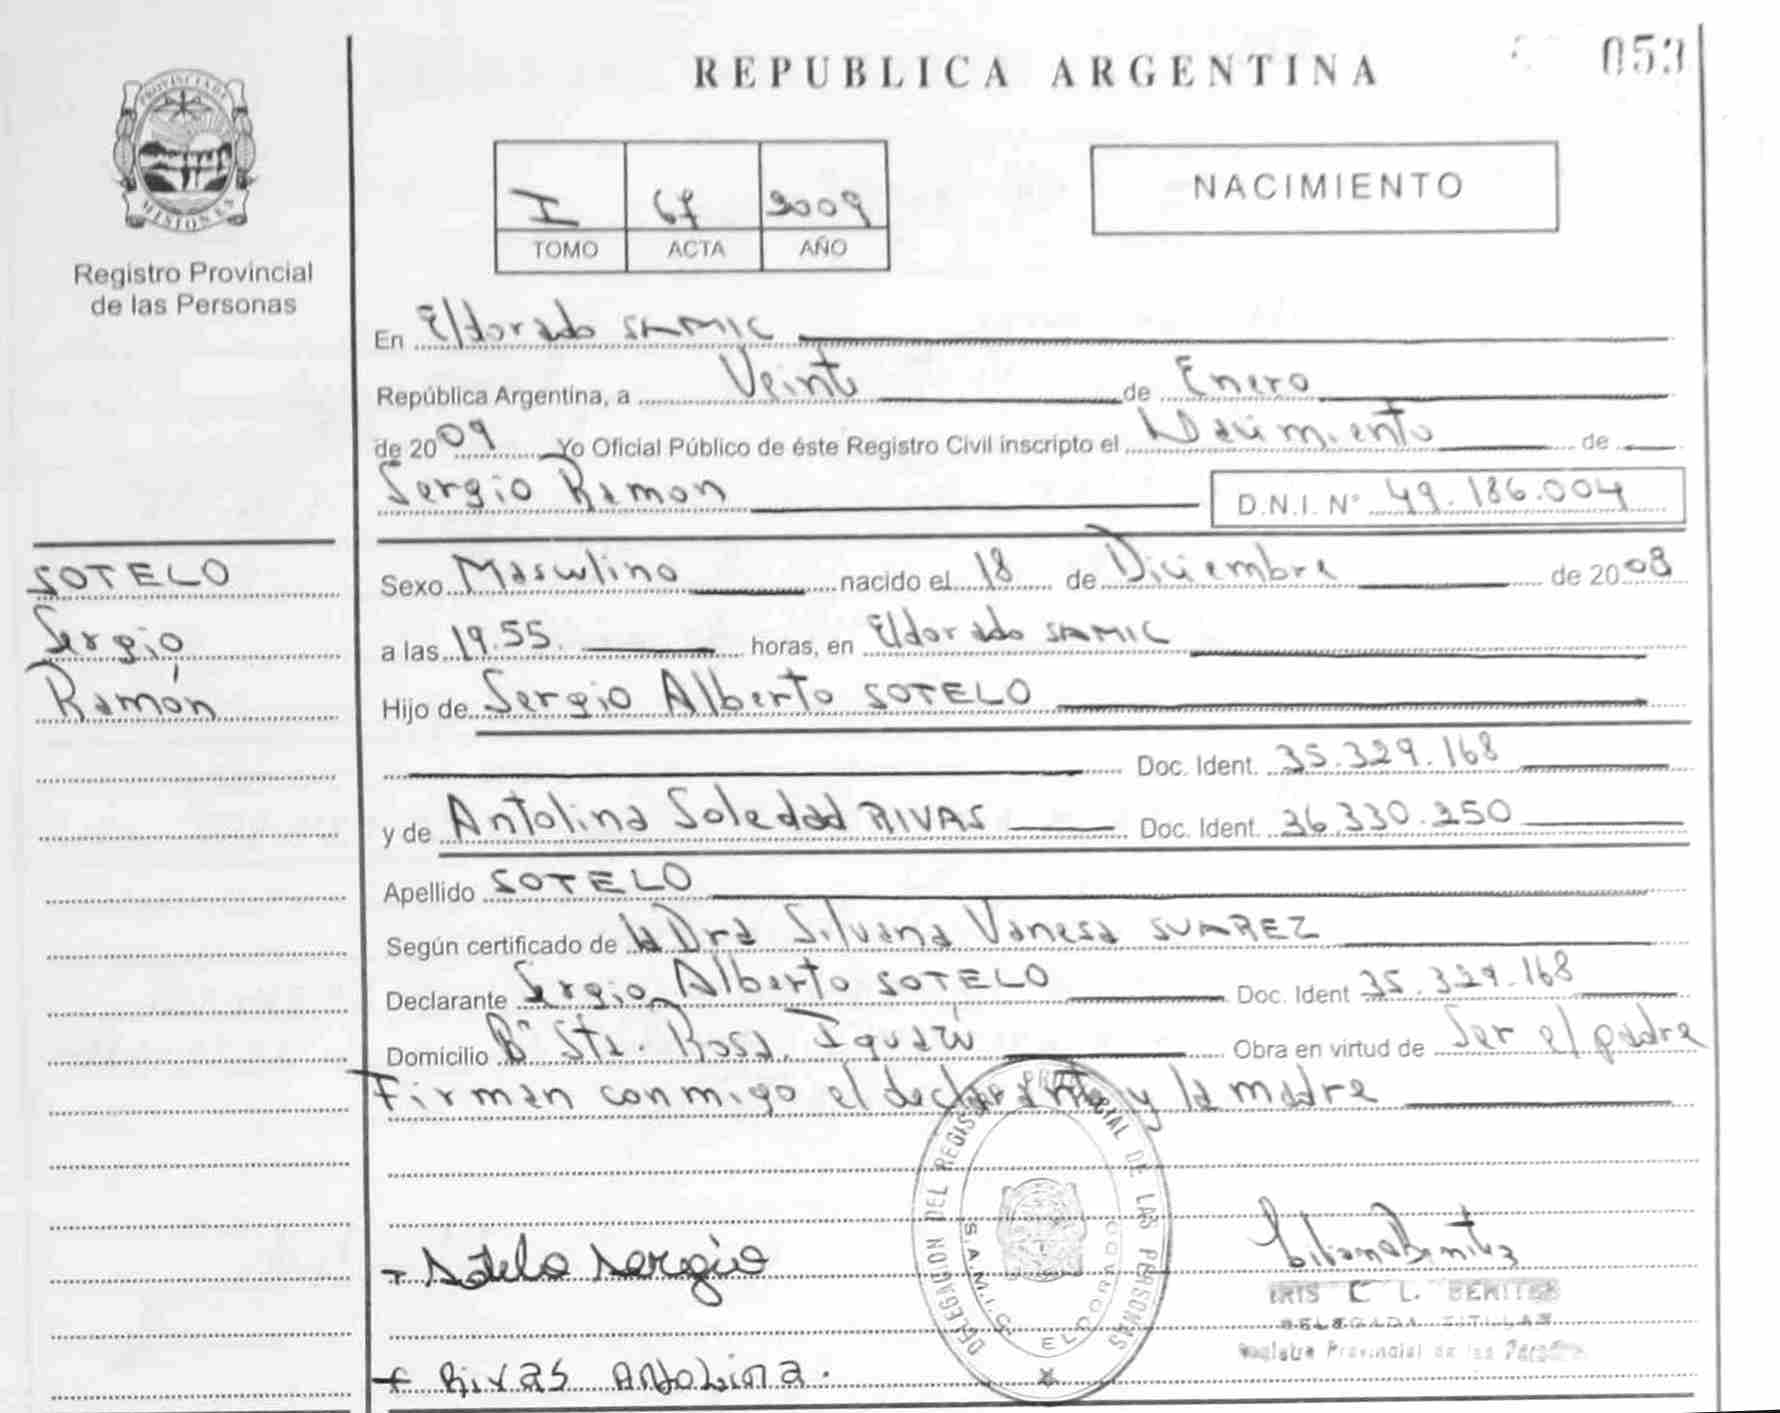 REPUBLICA ARGENTINA
053
PROVINCIA DE
MISIONES
Registro Provincial
de las Personas
I 67 2009
TOMO ACTA AÑO
NACIMIENTO
En Eldorado SAMIC
República Argentina, a Veinte de Enero
de 2009 Yo Oficial Público de éste Registro Civil inscripto el Nacimiento de
Sergio Ramon D.N.I. Nº 49.186.004
SOTELO
Sergio
Ramón
Sexo Masculino nacido el 18 de Diciembre de 2008
a las 19.55. horas, en Eldorado SAMIC
Hijo de Sergio Alberto SOTELO
Doc. Ident. 35.329.168
y de Antolina Soledad RIVAS Doc. Ident. 36.330.250
Apellido SOTELO
Según certificado de la Dra Silvana Vanesa SUAREZ
Declarante Sergio Alberto SOTELO Doc. Ident 35.329.168
Domicilio Bº Sta. Rosa. Iguazú Obra en virtud de Ser el padre
Firman conmigo el declarante y la madre
DELEGACION DEL REGISTRO PROVINCIAL DE LAS PERSONAS
S.A.M.I.C. ELDORADO
Sotelo Sergio
Rivas Antolina.
IRIS L. BENITEZ
DELEGADA TITULAR
Registro Provincial de las Personas